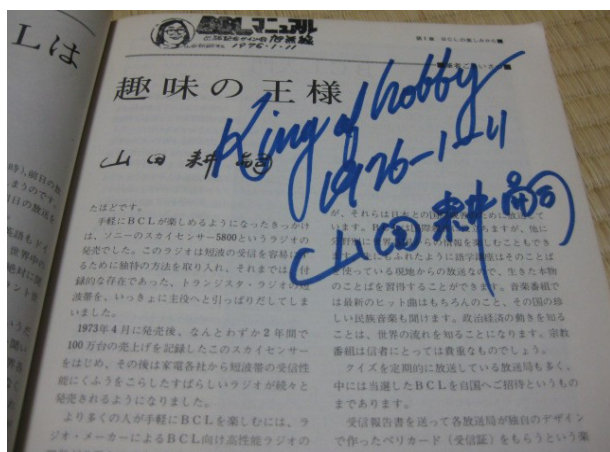 Lは
BCLマニュアル
1976・1・11
第1章 BCLの楽しみかた■
趣味の王様
King of hobby
1976-1-11
山田耕嗣
山田耕嗣
たほどです。
手軽にBCLが楽しめるようになったきっかけ
は、ソニーのスカイセンサー5800というラジオの
発売でした。このラジオは短波の受信を容易にす
るために独特の方法を取り入れ、それまでは、付
録的な存在であった、トランジスタ・ラジオの短
波帯を、いっきょに主役へと引っぱりだしてしま
いました。
1973年4月に発売後、なんとわずか2年間で
100万台の売上げを記録したこのスカイセンサー
をはじめ、その後は家電各社から短波帯の受信性
能にくふうをこらしたすばらしいラジオが続々と
発売されるようになりました。
より多くの人が手軽にBCLを楽しむには、ラ
ジオ・メーカーによるBCL向け高性能ラジオの
が、それらは日本との
使っている現地からの放送なので、生きた本物
のことばを習得することができます。音楽番組で
は最新のヒット曲はもちろんのこと、その国の珍
しい民族音楽も聞けます。政治経済の動きを知る
ことは、世界の流れを知ることになります。宗教
番組は信者にとっては貴重なものでしょう。
クイズを定期的に放送している放送局も多く、
中には当選したBCLを自国へご招待というもの
まであります。
受信報告書を送って各放送局が独自のデザイン
で作ったベリカード（受信証）をもらうという楽